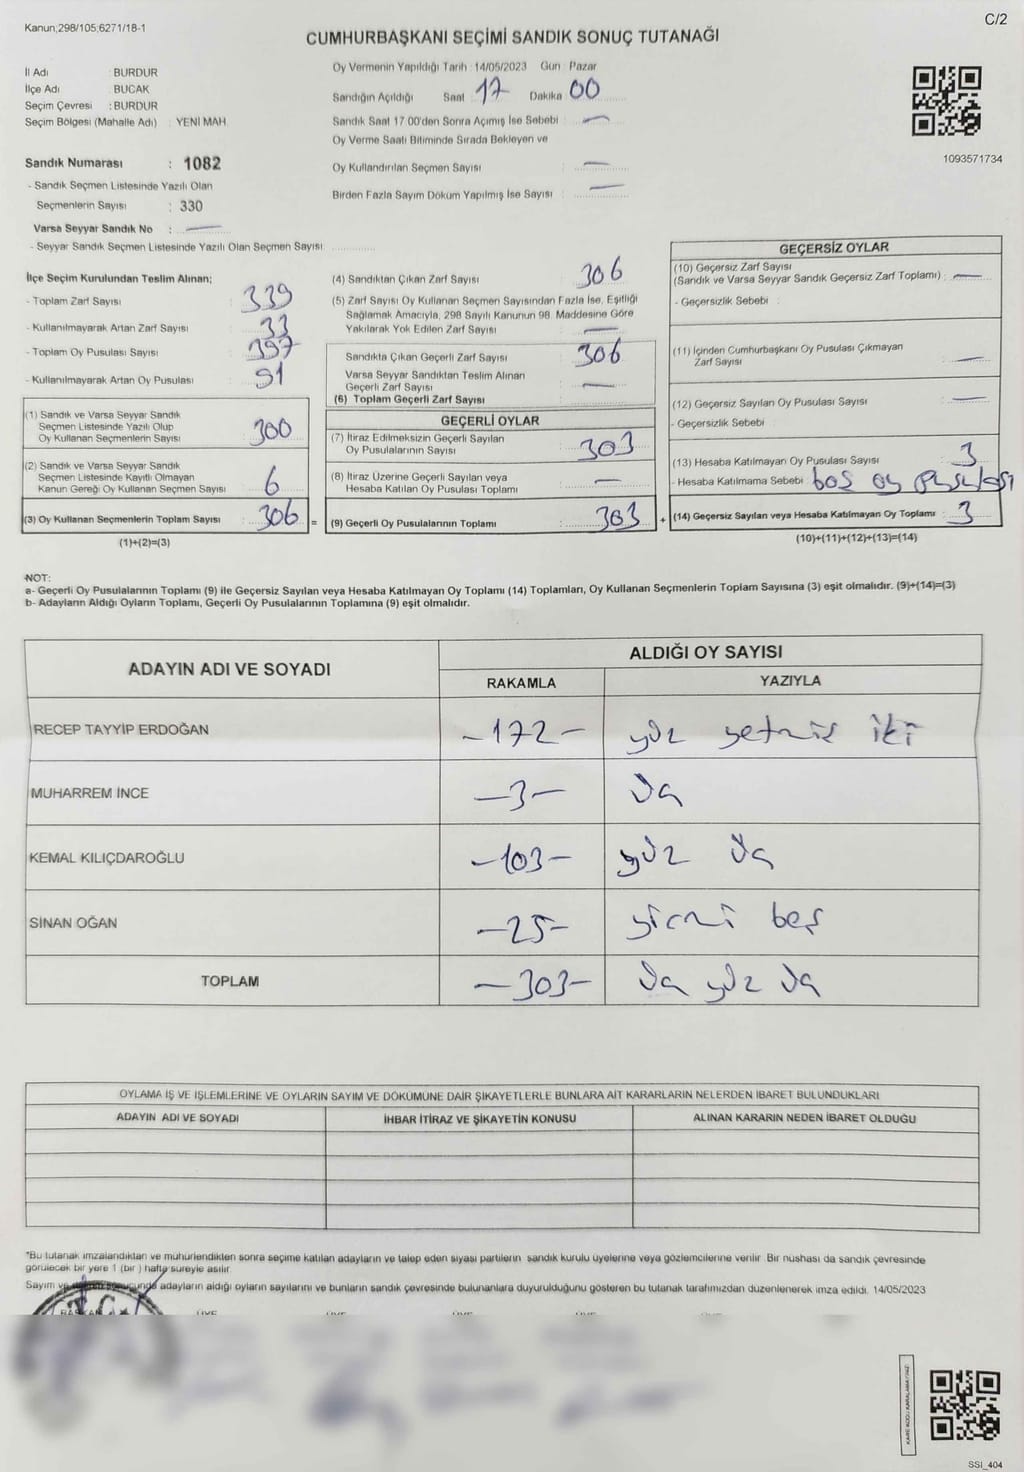 Kanun;298/105;6271/18-1
C/2
CUMHURBAŞKANI SEÇİMİ SANDIK SONUÇ TUTANAĞI
İl Adı : BURDUR
İlçe Adı : BUCAK
Seçim Çevresi : BURDUR
Seçim Bölgesi (Mahalle Adı) : YENİ MAH.
Sandık Numarası : 1082
- Sandık Seçmen Listesinde Yazılı Olan
Seçmenlerin Sayısı : 330
Varsa Seyyar Sandık No : —
- Seyyar Sandık Seçmen Listesinde Yazılı Olan Seçmen Sayısı
Oy Vermenin Yapıldığı Tarih : 14/05/2023 Gün : Pazar
Sandığın Açıldığı Saat 17 Dakika 00
Sandık Saat 17.00'den Sonra Açımış İse Sebebi : —
Oy Verme Saati Bitiminde Sırada Bekleyen ve
Oy Kullandırılan Seçmen Sayısı : —
Birden Fazla Sayım Döküm Yapılmış İse Sayısı : —
1093571734
İlçe Seçim Kurulundan Teslim Alınan;
- Toplam Zarf Sayısı : 339
- Kullanılmayarak Artan Zarf Sayısı : 33
- Toplam Oy Pusulası Sayısı : 397
- Kullanılmayarak Artan Oy Pusulası : 91
(1) Sandık ve Varsa Seyyar Sandık
Seçmen Listesinde Yazılı Olup
Oy Kullanan Seçmenlerin Sayısı : 300
(2) Sandık ve Varsa Seyyar Sandık
Seçmen Listesinde Kayıtlı Olmayan
Kanun Gereği Oy Kullanan Seçmen Sayısı : 6
(3) Oy Kullanan Seçmenlerin Toplam Sayısı : 306 =
(1)+(2)=(3)
(4) Sandıktan Çıkan Zarf Sayısı : 306
(5) Zarf Sayısı Oy Kullanan Seçmen Sayısından Fazla İse, Eşitliği
Sağlamak Amacıyla, 298 Sayılı Kanunun 98. Maddesine Göre
Yakılarak Yok Edilen Zarf Sayısı : —
Sandıkta Çıkan Geçerli Zarf Sayısı : 306
Varsa Seyyar Sandıktan Teslim Alınan
Geçerli Zarf Sayısı : —
(6) Toplam Geçerli Zarf Sayısı
GEÇERLİ OYLAR
(7) İtiraz Edilmeksizin Geçerli Sayılan
Oy Pusulasının Sayısı : 303
(8) İtiraz Üzerine Geçerli Sayılan veya
Hesaba Katılan Oy Pusulası Toplamı : —
(9) Geçerli Oy Pusulalarının Toplamı : 303 +
GEÇERSİZ OYLAR
(10) Geçersiz Zarf Sayısı
(Sandık ve Varsa Seyyar Sandık Geçersiz Zarf Toplamı) : —
- Geçersizlik Sebebi :
(11) İçinden Cumhurbaşkanı Oy Pusulası Çıkmayan
Zarf Sayısı : —
(12) Geçersiz Sayılan Oy Pusulası Sayısı : —
- Geçersizlik Sebebi
(13) Hesaba Katılmayan Oy Pusulası Sayısı : 3
- Hesaba Katılmama Sebebi : boş oy pusulası
(14) Geçersiz Sayılan veya Hesaba Katılmayan Oy Toplamı : 3
(10)+(11)+(12)+(13)=(14)
NOT:
a- Geçerli Oy Pusulalarının Toplamı (9) ile Geçersiz Sayılan veya Hesaba Katılmayan Oy Toplamı (14) Toplamları, Oy Kullanan Seçmenlerin Toplam Sayısına (3) eşit olmalıdır. (9)+(14)=(3)
b- Adayların Aldığı Oyların Toplamı, Geçerli Oy Pusulalarının Toplamına (9) eşit olmalıdır.
ADAYIN ADI VE SOYADI ALDIĞI OY SAYISI
RAKAMLA YAZIYLA
RECEP TAYYİP ERDOĞAN -172- yüz yetmiş iki
MUHARREM İNCE -3- üç
KEMAL KILIÇDAROĞLU -103- yüz üç
SİNAN OĞAN -25- yirmi beş
TOPLAM -303- üç yüz üç
OYLAMA İŞ VE İŞLEMLERİNE VE OYLARIN SAYIM VE DÖKÜMÜNE DAİR ŞİKAYETLERLE BUNLARA AİT KARARLARIN NELERDEN İBARET BULUNDUKLARI
ADAYIN ADI VE SOYADI İHBAR İTİRAZ VE ŞİKAYETİN KONUSU ALINAN KARARIN NEDEN İBARET OLDUĞU
*Bu tutanak imzalandıktan ve mühürlendikten sonra seçime katılan adayların ve talep eden siyasi partilerin sandık kurulu üyelerine veya gözlemcilerine verilir. Bir nüshası da sandık çevresinde
görülecek bir yere 1 (bir) hafta süreyle asılır.
Sayım ve sonucunda adayların aldığı oyların sayılarını ve bunların sandık çevresinde bulunanlara duyurulduğunu gösteren bu tutanak tarafımızdan düzenlenerek imza edildi. 14/05/2023
SSİ_404